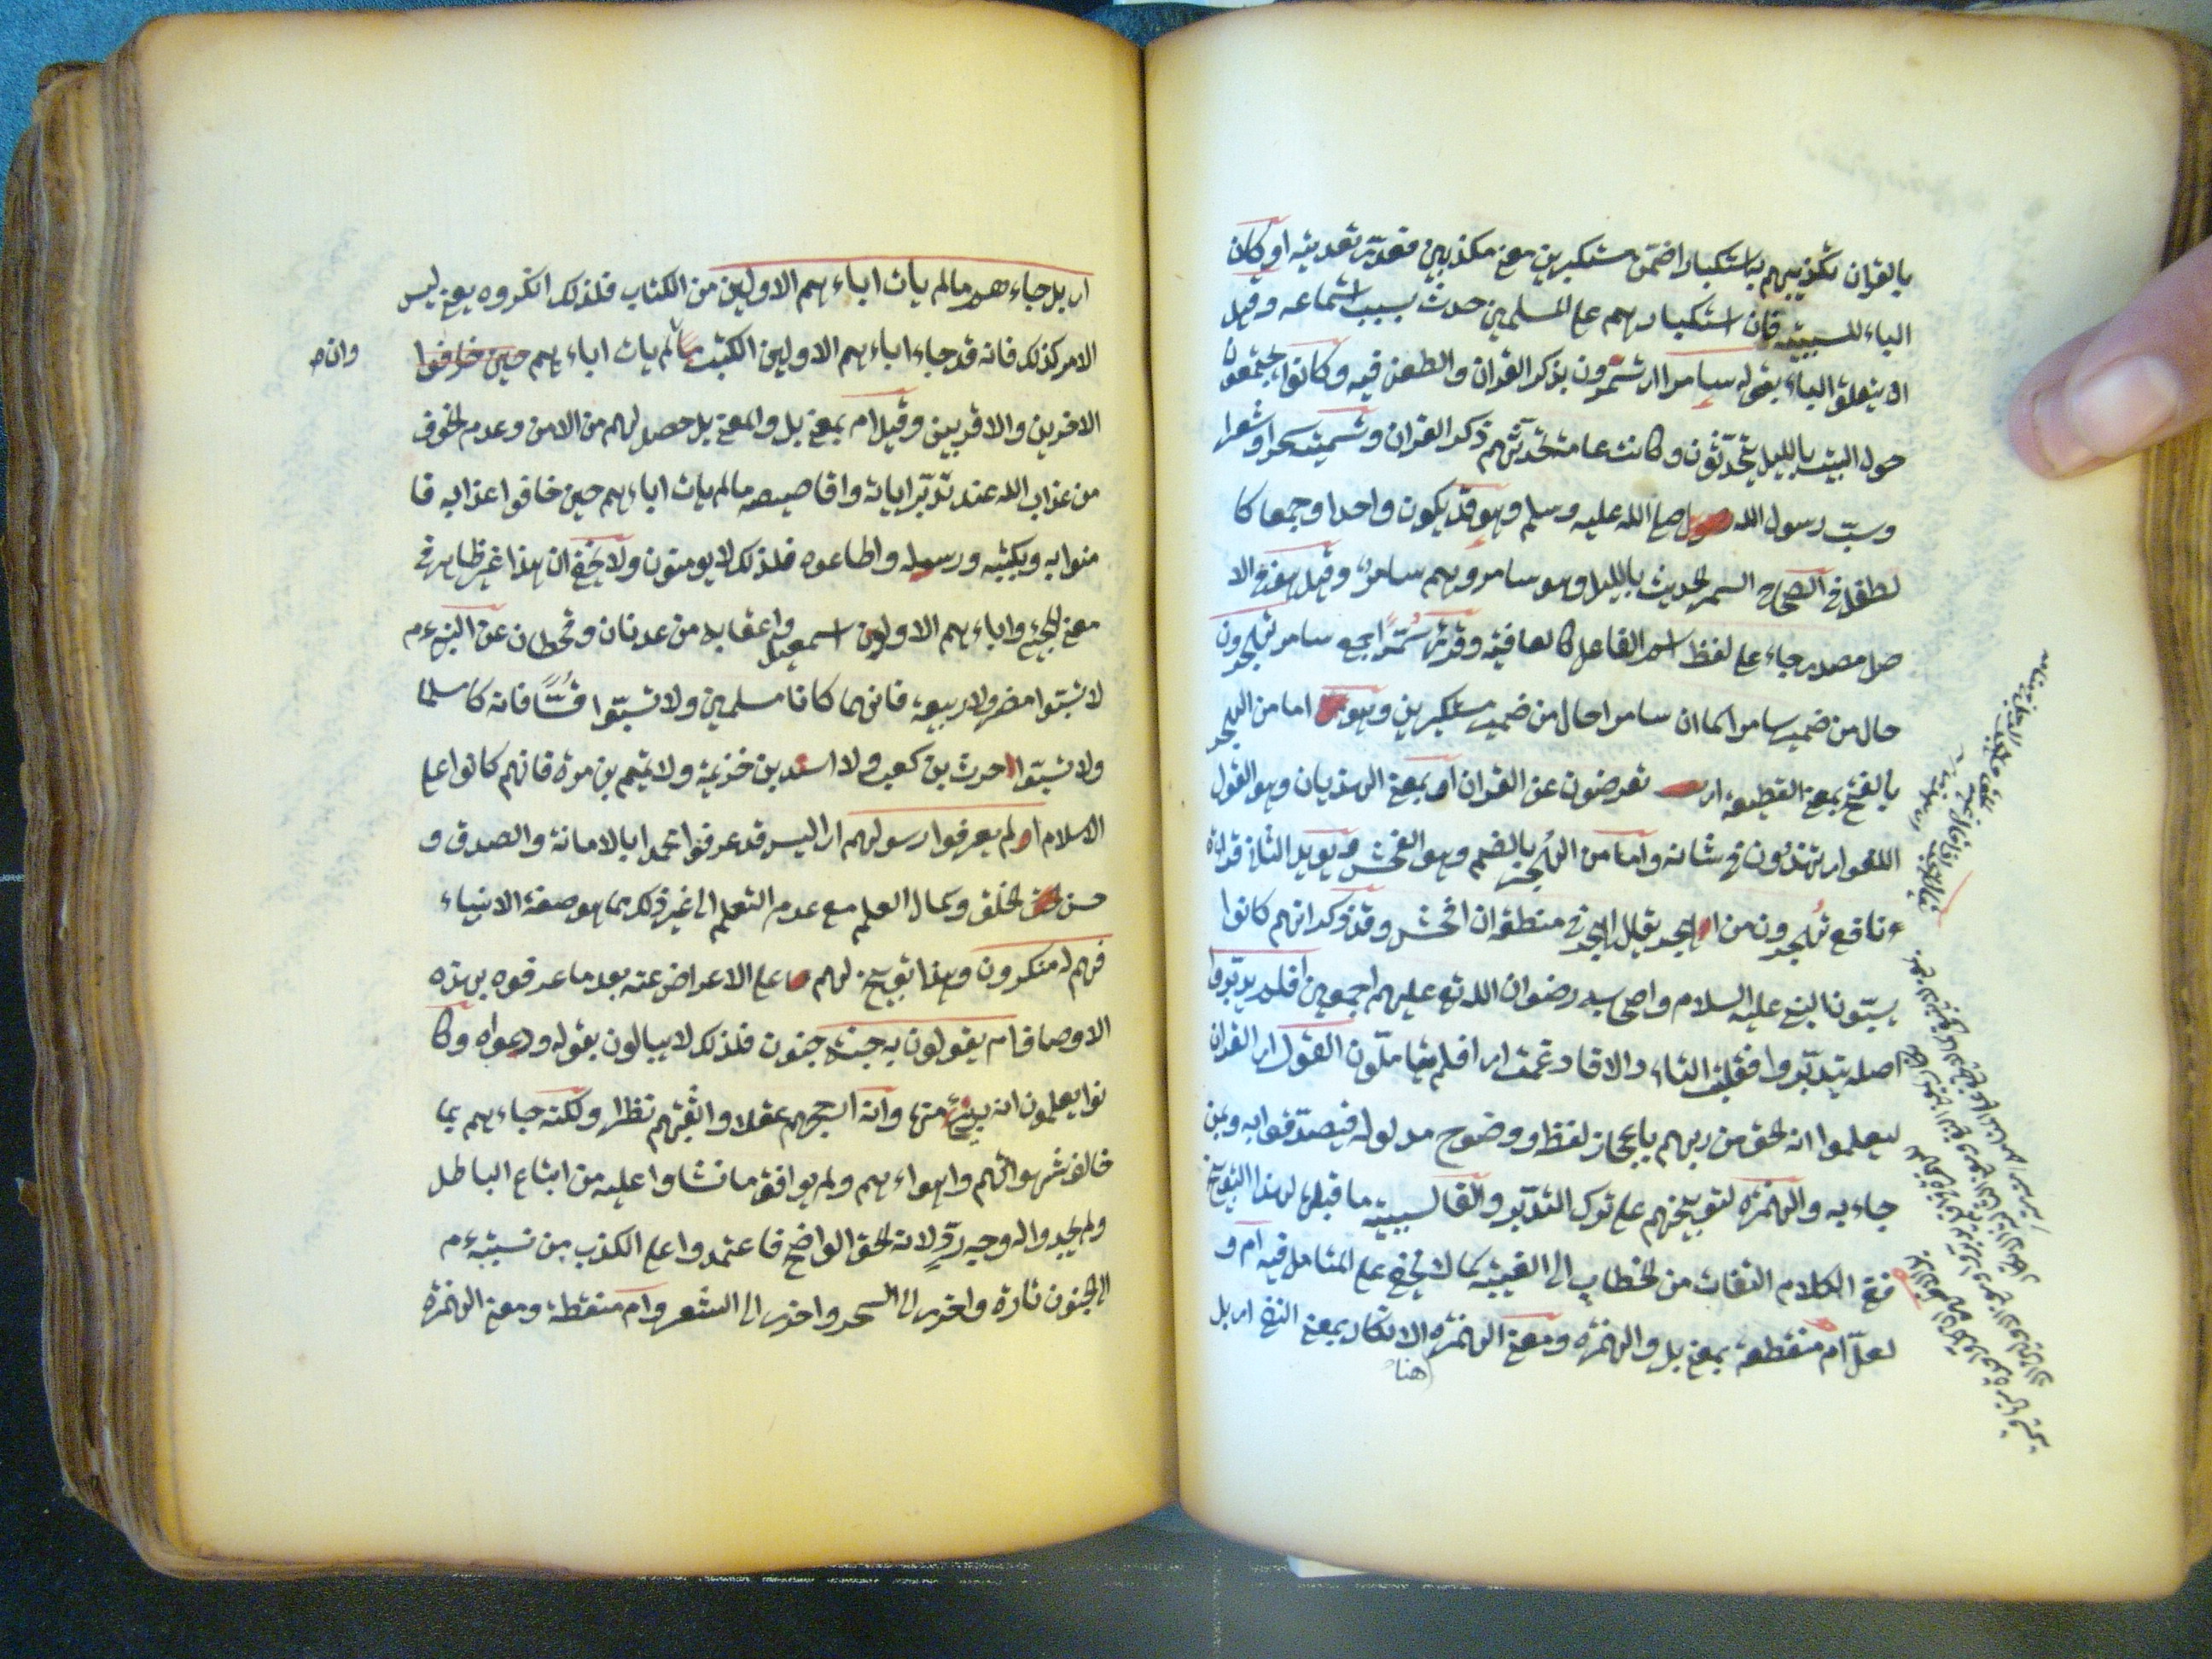 بالقران تكذيبهم به استكبارا ضمّن مستكبرين معنى مكذبين فعدّى تعديته او كان
الباء للسببية فان استكبارهم على المسلمين حدث بسبب استماعه وقيل
ان يتعلق الباء بقوله سامرا اى تسمرون بذكر القران والطعن فيه وكانوا يجتمعون
حول البيت بالليل يتحدّثون وكانت عامة تحدّثهم ذكر القران وتسميته سحرا وشعرا
وسبّ رسول الله صلى الله عليه وسلم وهو قد يكون واحدا وجمعا كا
لطفل فى الصحاح السمر الحديث بالليل وهو سامر وهم سامر وقيل هو فى الا
صل مصدر جاء على لفظ اسم الفاعل كالعافية وقرئ سُمّرًا جمع سامر تهجرون
حال من ضمير سامرا كما ان سامرا حال من ضمير مستكبرين وهو اما من الهجر
بالفتح بمعنى القطيعة اى تعرضون عن القران او بمعنى الهذيان وهو القول
اللغو اى تهذون فى شانه واما من الهُجر بالضم وهو الفحش ويويد الثانى قراءة
نافع تُهجرون من اهجر يقال اهجر فى منطقه ان افحش وقد ذكر انهم كانوا
يسبّون النبى عليه السلام واصحابه رضوان الله تع عليهم اجمعين افلم يدّبّروا
اصله يتدبّروا فقلبت التاء دالا فادغمت اى افلم يتاملّون القول اى القران
ليعلموا انه الحق من ربهم باعجاز لفظه ووضوح مدلوله فيصدّقوا به وبمن
جاء به والهمزة لتوبيخهم على ترك التدبّر والفا لسببية ما قبلها لهذا التوبيخ
ففى الكلام التفات من الخطاب الى الغيبة كما لا يخفى على المتامل فيه ام و
لعلّ ام منقطعة بمعنى بل والهمزة ومعنى الهمزة الانكار بمعنى النفى اى بل
هنا
اى بل جاءهم مالم يات اباءهم الاولين من الكتاب فلذلك انكروه يعنى ليس
الامر كذلك فانه قد جاء اباءهم الاولين الكتب مالم يات اباءهم حين خافوا
وان
الاخرين والاقربين وقيل ام بمعنى بل والمعنى بل حصل لهم من الامن وعدم الخوف
من عذاب الله عند تدبّر اياته واقاصيصه مالم يات اباءهم حين خافوا عذابه فا
منوا به وبكتبه ورسوله واطاعوه فلذلك لا يومنون ولا يخفى ان هذا غير ظاهر فى
معنى المجئ واباءهم الاولون اسمعيل واعقابه من عدنان وقحطان عن النبى م
لا تسبّوا مضر ولا ربيعة فانهما كانا مسلمين ولا تسبّوا قُسًّا فانه كا مسلما
ولا تسبّوا حرث بن كعب ولا اسد بن خزيمة ولا تميم بن مرة فانهم كانوا على
الاسلام ام لم يعرفوا رسولهم اى اليس قد عرفوا محمدا بالامانة والصدق و
حسن الخلق وكمال العلم مع عدم التعلم الى غير ذلك مما هو صفة الانبياء
فهم له منكرون وهذا توبيخ لهم على الاعراض عنه بعد ما عرفوه بهذه
الاوصاف ام يقولون به جنة جنون فلذلك لا يبالون بقوله ودعواه وكا
نوا يعلمون انه برئ منها وانه ارجحهم عقلا واثقبهم نظرا ولكنه جاءهم بما
خالف شهواتهم واهواءهم ولم يوافق ما نشاوا عليه من اتباع الباطل
ولم يجدوا له وجه ردّ لانه الحق الواضح فاعتمدوا على الكذب من نسبته م
الى الجنون تارة واخرى الى السحر واخرى الى الشعر وام منقطة ومعنى الهمزة